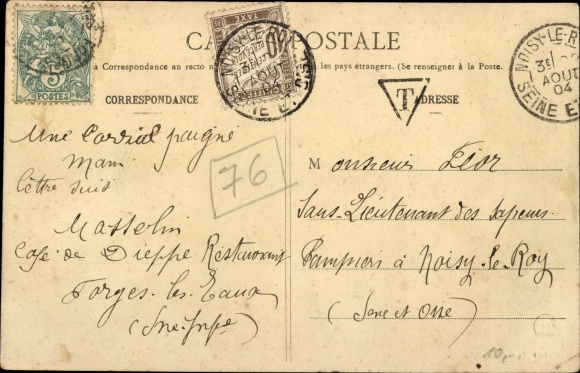 CARTE POSTALE
la Correspondance au recto les pays étrangers. (Se renseigner à la Poste.
CORRESPONDANCE
ADRESSE
5
POSTES
TAXE
NOISY-LE-R
3E
AOUT
04
SEINE E
T
76
Une Cordial poigné
Mam
lettre suit
Masselin
Café de Dieppe Restaurant
Forges-les-Eaux
(Sne-Infre)
Monsieur Flor
Sous-Lieutenant des sapeurs-
Pompiers à Noisy-le-Roy
(Sene et Oise)
10,-